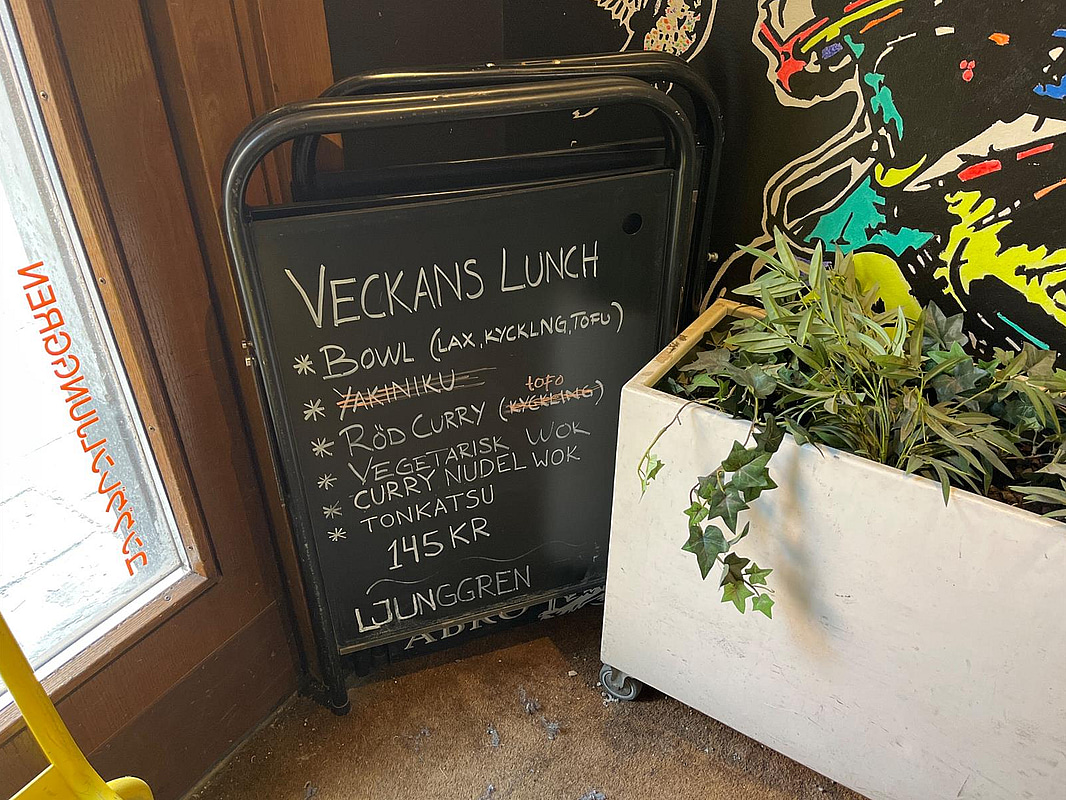 VECKANS LUNCH
* BOWL (LAX, KYCKLNG, TOFU)
* YAKINIKU
* RÖD CURRY (KYCKLING) tofo
* VEGETARISK WOK
* CURRY NUDEL WOK
* TONKATSU
145 KR
LJUNGGREN
LJUNGGREN